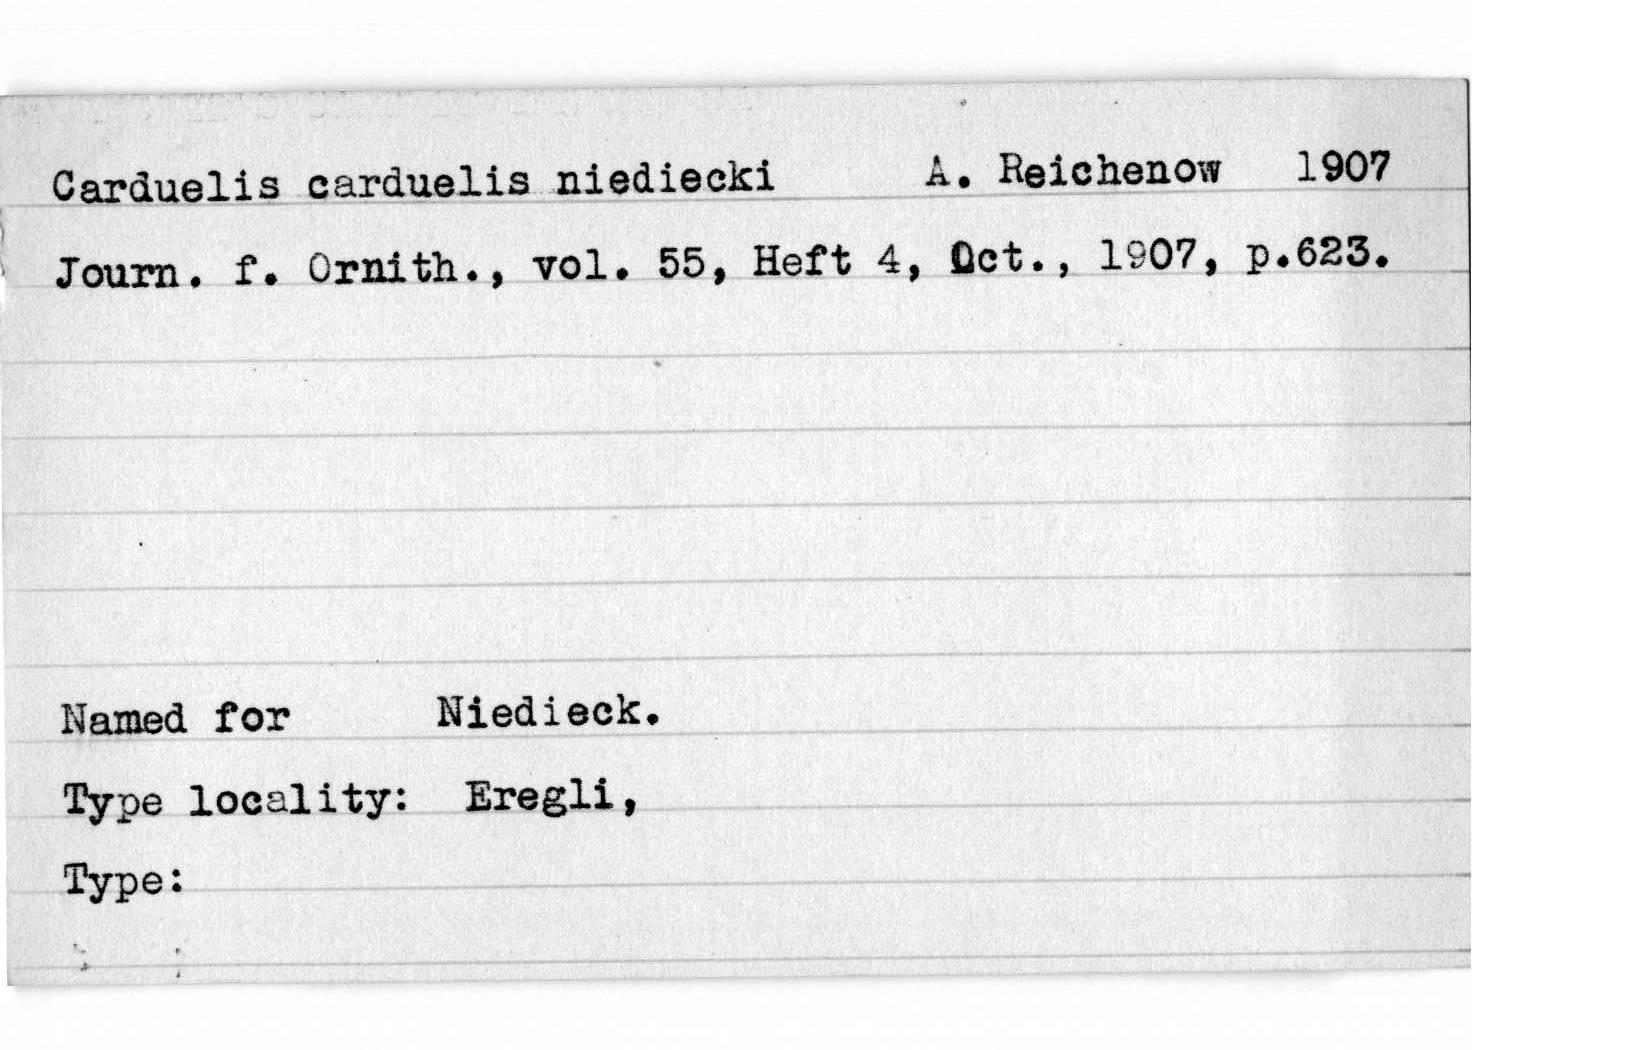 Carduelis carduelis niediecki A. Reichenow 1907
Journ. f. Ornith., vol. 55, Heft 4, Oct., 1907, p.623.
Named for Niedieck.
Type locality: Eregli,
Type: